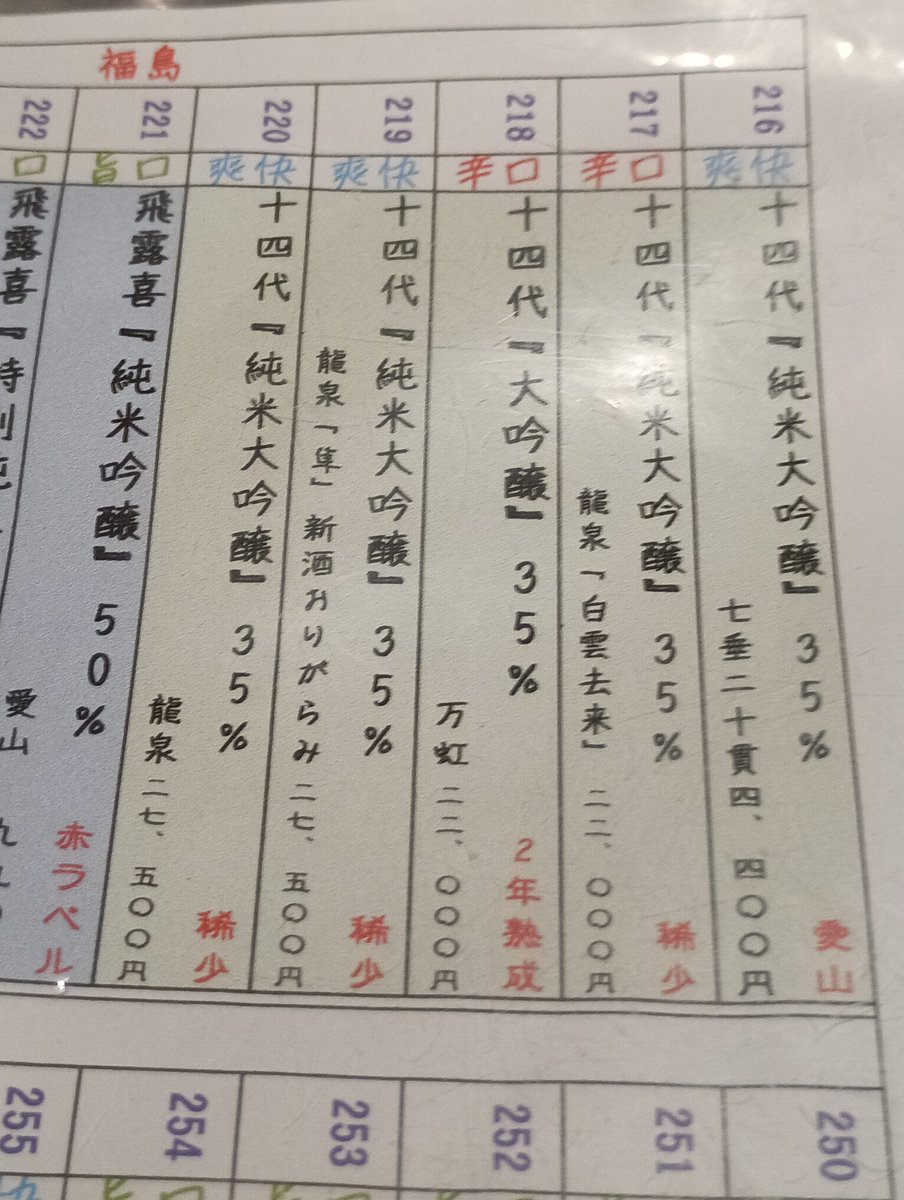 福島
216
爽快
十四代『純米大吟醸』35%
愛山
七垂二十貫 四、四〇〇円
217
辛口
十四代『純米大吟醸』35%
稀少
龍泉「白雲去来」 二二、〇〇〇円
218
辛口
十四代『大吟醸』35%
2年熟成
万虹 二二、〇〇〇円
219
爽快
十四代『純米大吟醸』35%
稀少
龍泉「隼」新酒おりがらみ 二七、五〇〇円
220
爽快
十四代『純米大吟醸』35%
稀少
龍泉 二七、五〇〇円
221
旨口
飛露喜『純米吟醸』50%
赤ラベル
222
口
飛露喜『特別純
愛山
250
251
252
253
254
255